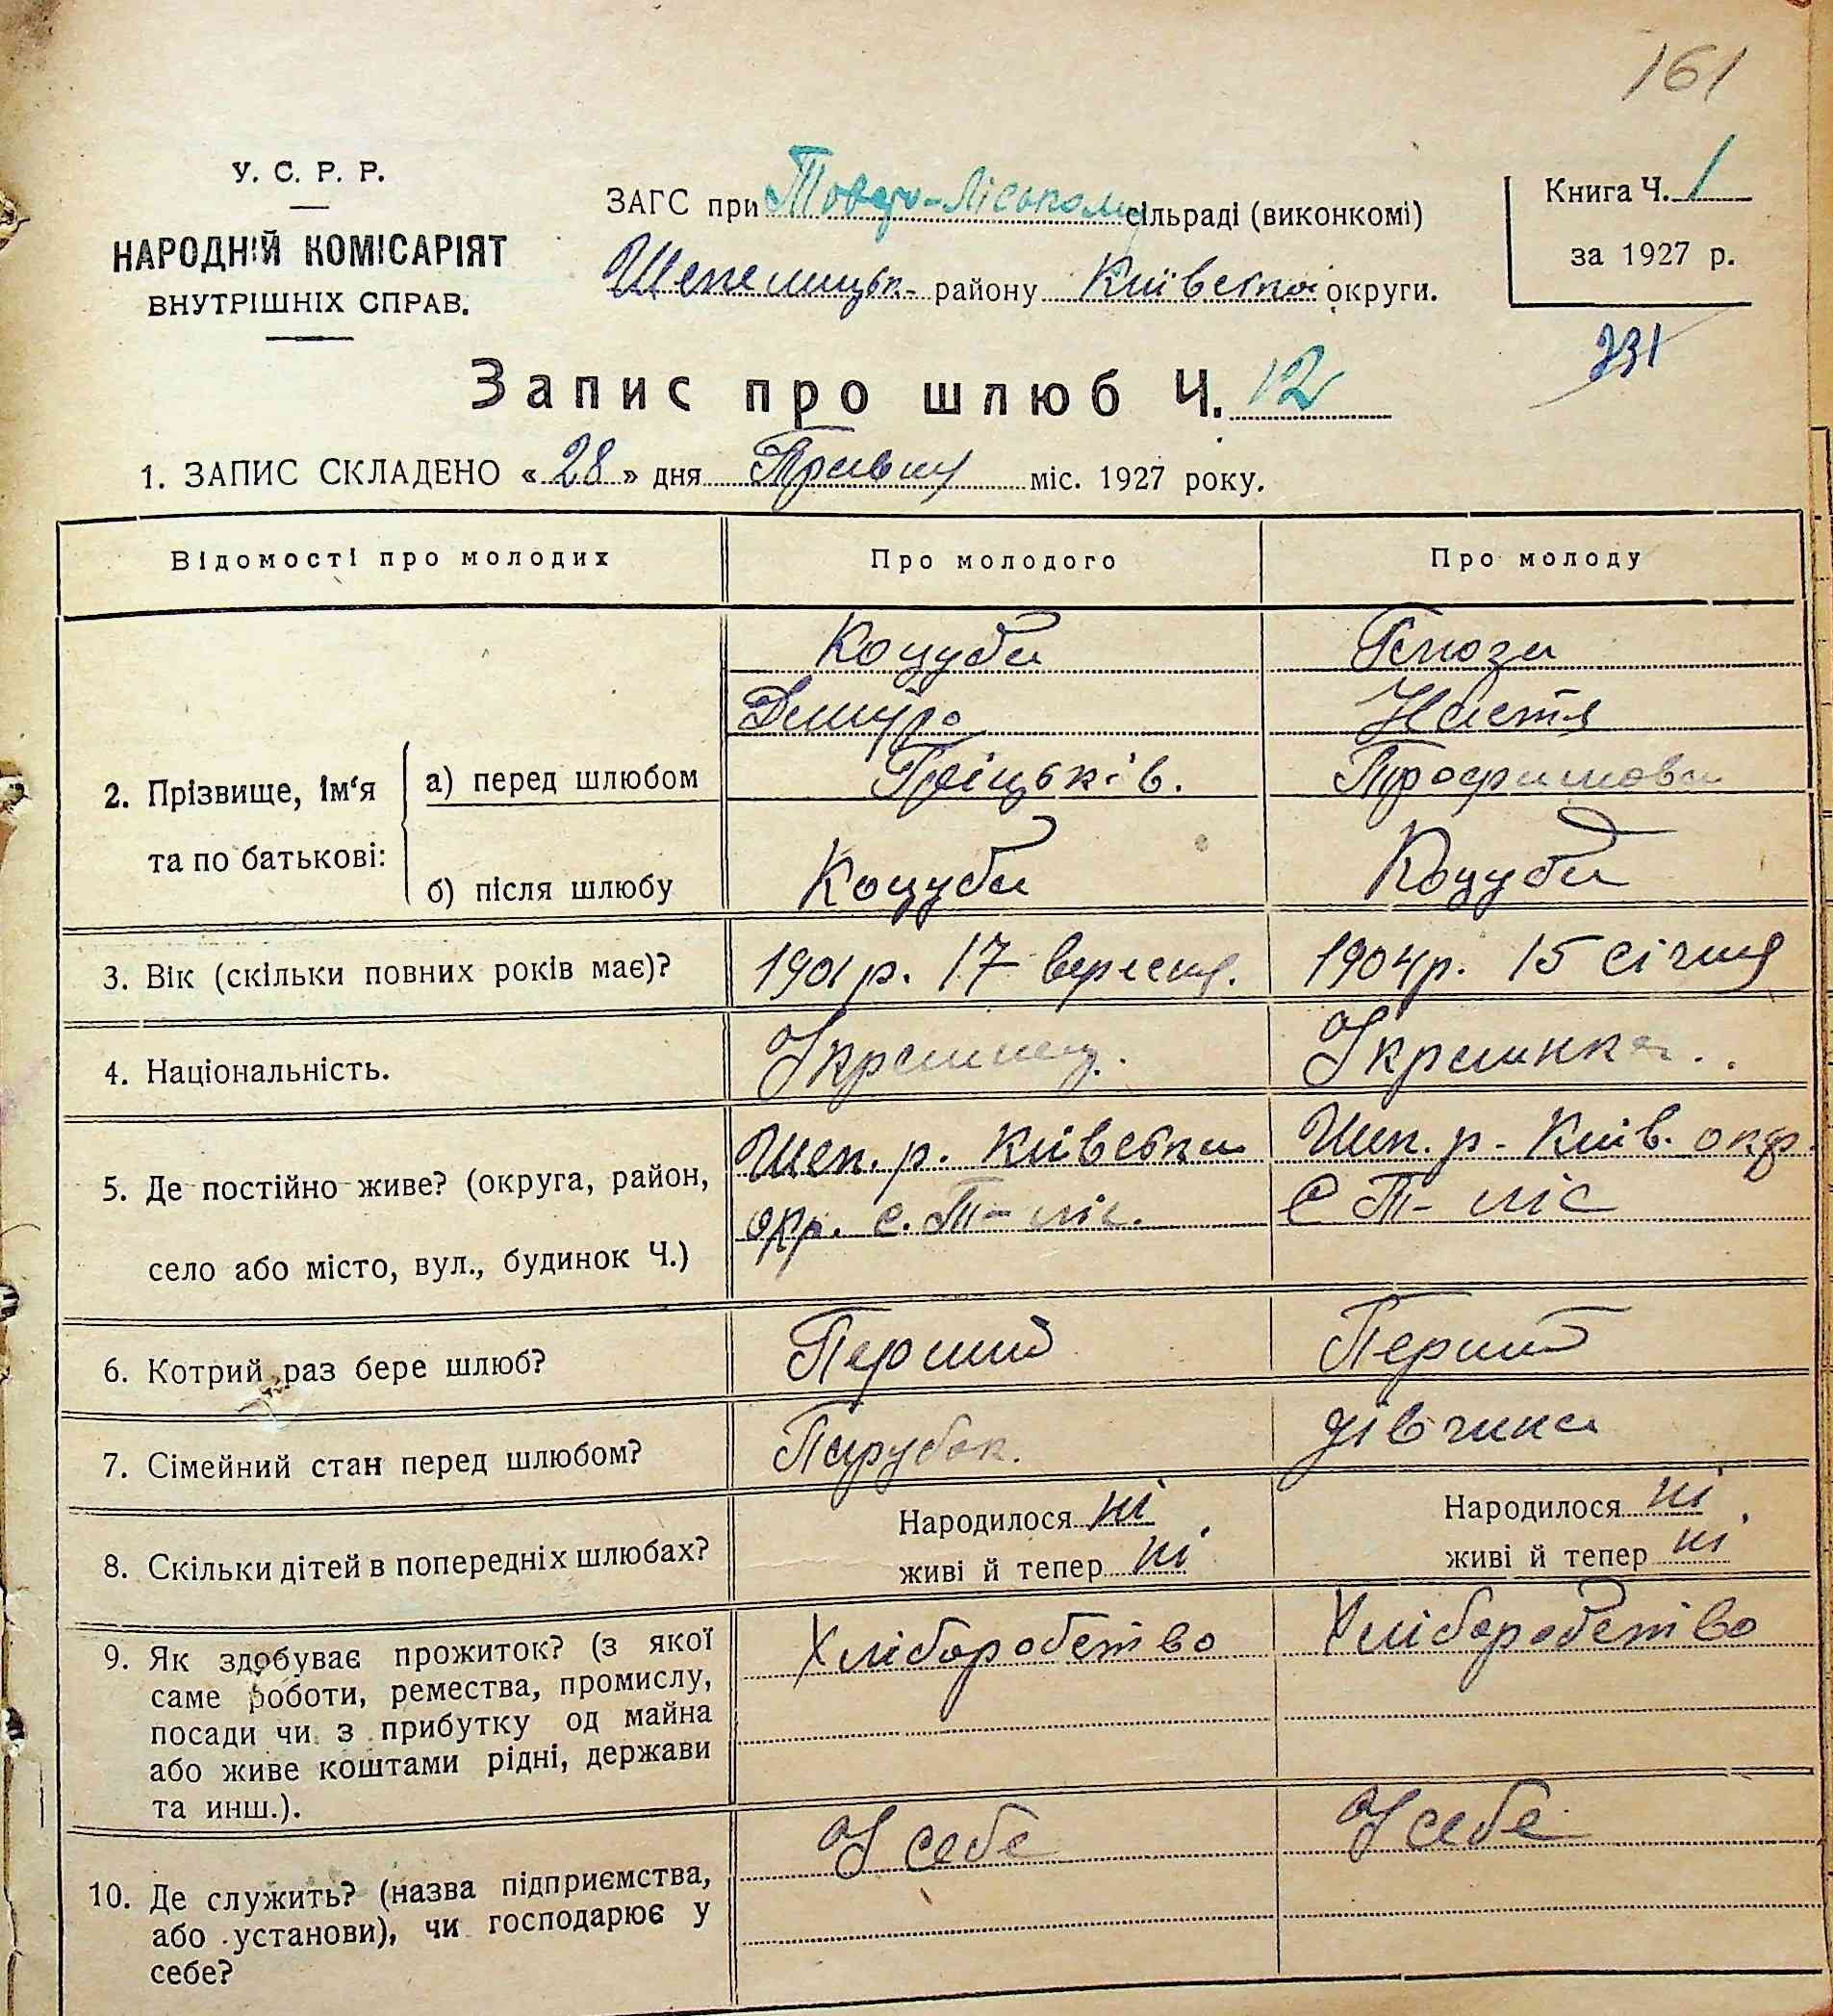 161
У. С. Р. Р.
НАРОДНІЙ КОМІСАРІЯТ
ВНУТРІШНІХ СПРАВ.
ЗАГС при Товсто-Ліському сільраді (виконкомі)
Шепелицьк. району Київської округи.
Книга Ч. 1
за 1927 р.
331
Запис про шлюб Ч. 12
1. ЗАПИС СКЛАДЕНО « 28 » дня Травня міс. 1927 року.
Відомості про молодих Про молодого Про молоду
Коцуба
Дмитро Настя
2. Прізвище, ім‘я а) перед шлюбом Гріцьків. Трофимова
та по батькові:
б) після шлюбу Коцуба Коцуба
3. Вік (скільки повних років має)? 1901 р. 17 вересня. 1904 р. 15 січня
4. Національність. Українец. Українка.
5. Де постійно живе? (округа, район, Шеп. р. Київська Шеп. р. Київ. окр.
окр. с. Т-ліс. с Т-ліс
село або місто, вул., будинок Ч.)
6. Котрий раз бере шлюб? Перший Перший
7. Сімейний стан перед шлюбом? Парубок. дівчина
8. Скільки дітей в попередніх шлюбах? Народилося ні Народилося ні
живі й тепер ні живі й тепер ні
9. Як здобуває прожиток? (з якої Хліборобство Хліборобство
саме роботи, ремества, промислу,
посади чи з прибутку од майна
або живе коштами рідні, держави
та инш.).
У себе У себе
10. Де служить? (назва підприємства,
або установи), чи господарює у
себе?